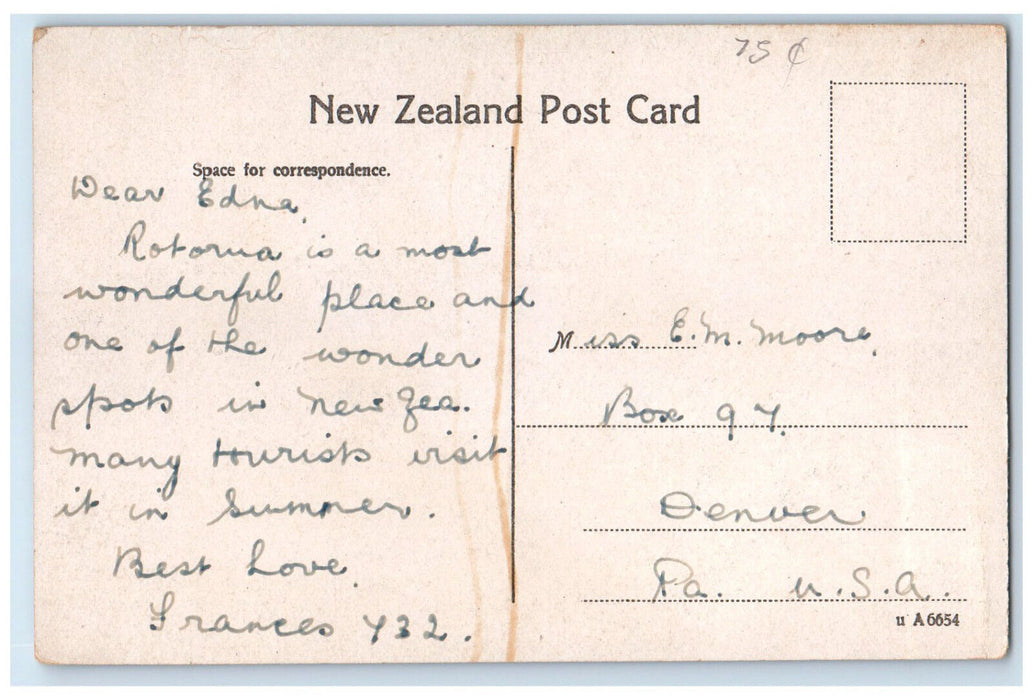 75 ¢
New Zealand Post Card
Space for correspondence.
Dear Edna,
Rotorua is a most
wonderful place and
one of the wonder
spots in New Zea.
Many tourists visit
it in Summer.
Best Love,
Frances 432.
Miss E. M. Moore,
Box 97.
Denver
Pa. U.S.A.
u A6654